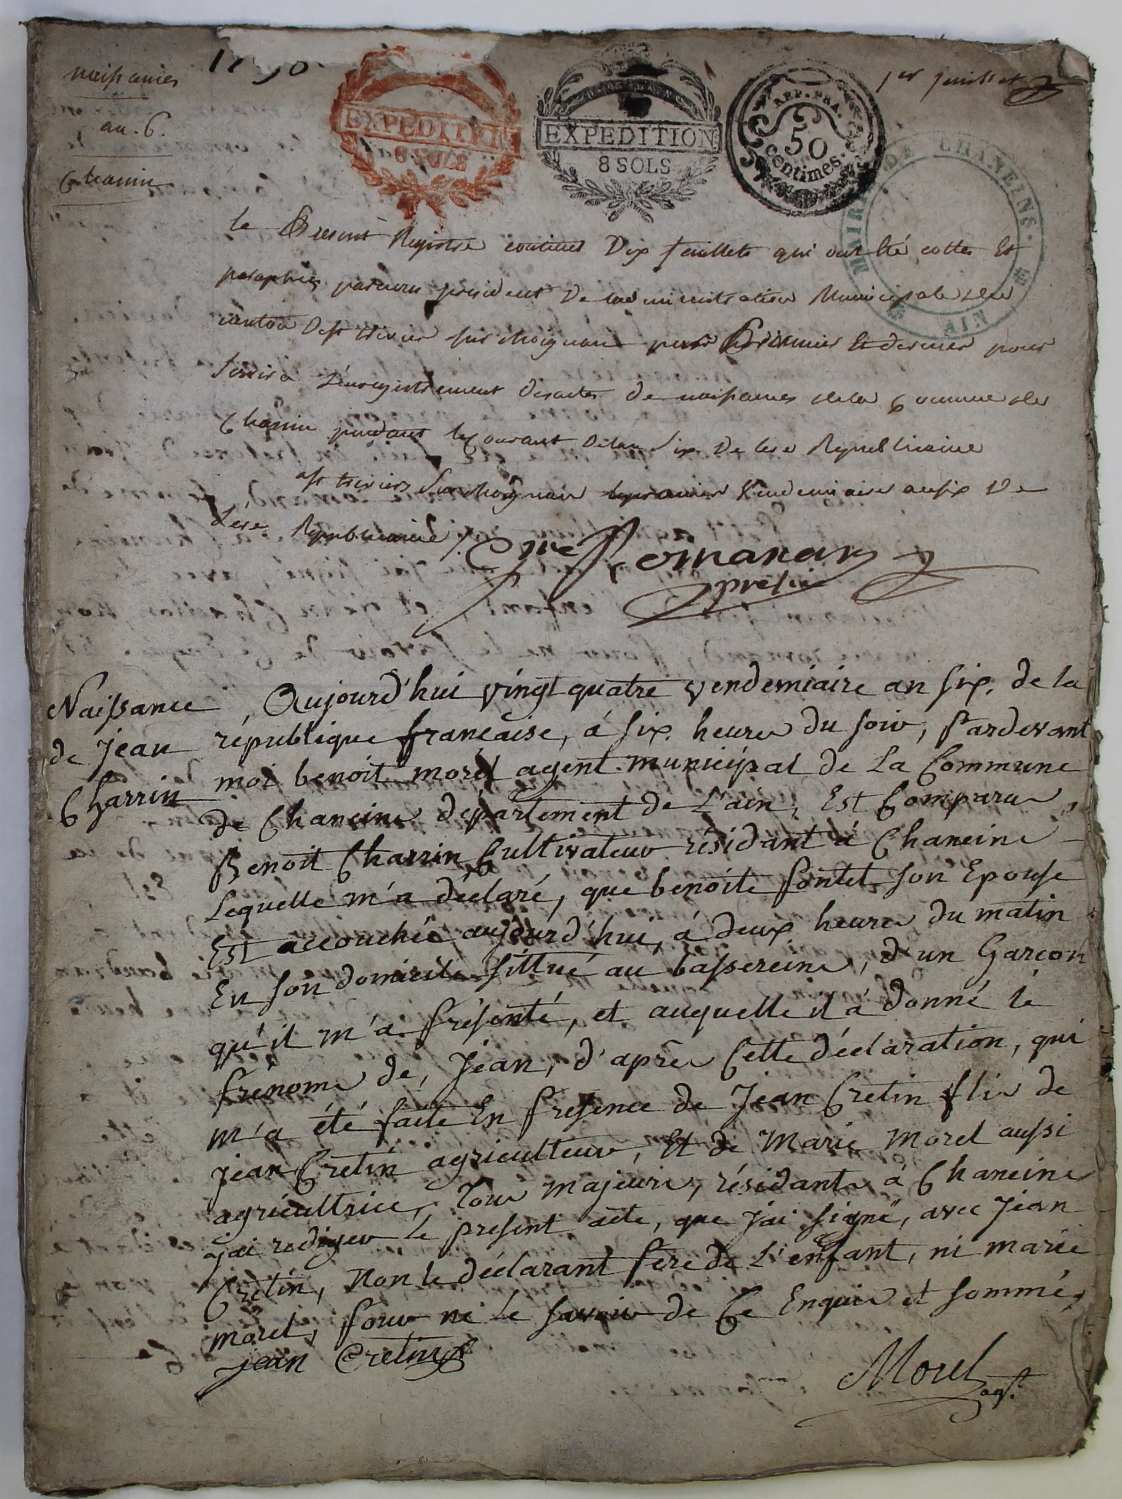 naissances
an. 6.
Chanin
EXPEDITION
8 SOLS
EXPEDITION
8 SOLS
REP. FRA.
50
centimes.
1er feuillet
MAIRIE DE CHANEINS
AIN
le Present Registre contient Dix feuillets qui ont été cottes Et
paraphés par nous president De l'administration Municipale du
canton De st trivier sur Moignans per Premier Et dernier pour
servir a L'enregistrement des actes de naissances de la Commune de
Chanin pendant le courant De l'an Six De l'ere Republicaine
a st trivier sur Moignan le premier Vendemiaire an six De
L'ere Republicaine
Naissance
de Jean
Charrin
Aujourd'hui vingt quatre vendemiaire an six. de la
republique francaise, á six. heure du soir, Pardevant
moi benoit morel agent municipal de La Commune
de Chaneine departement de L'ain, Est Comparu
Benoit Charrin Cultivateur résidant á Chaneine
Lequelle m'a declaré, que benoite Pontet son Epouse
Est accouchée aujourd'hui, á deux heure du matin
En son domicile sittué au bassereine, d'un Garcon
qu'il m'a Présenté, et auquelle il a donné le
Prenome de, Jean, d'apre Cette déclaration, qui
m'a été faite En Presence de Jean Cretin flis de
Jean Cretin agriculteur, Et de Marie Morel aussi
agricultrice, Tous majeurs, résidant á Chaneine
j'ai rediger le present acte, que J'ai signé, avec Jean
Cretin, Non le déclarant Pere de L'enfant, ni marie
morel, Pour ne le savoir de Ce Enquis et sommé,
jean Cretin
Morel
agt.